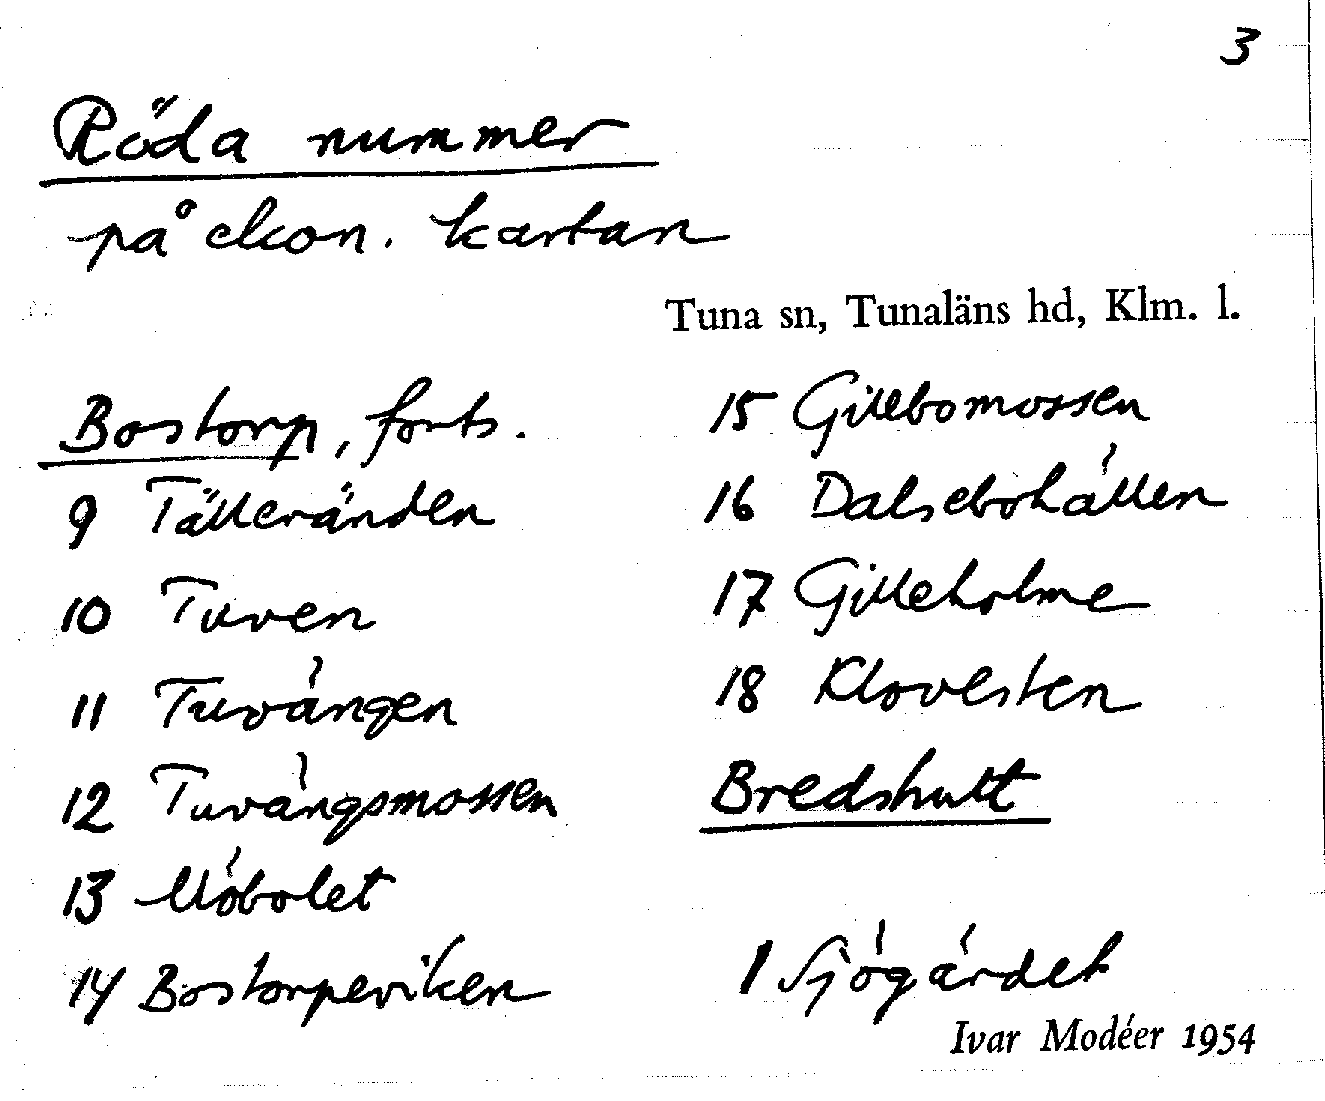 3
Röda nummer
på ekon. kartan
Tuna sn, Tunaläns hd, Klm. l.
Bostorp, forts.
9 Tälleränden
10 Tuven
11 Tuvängen
12 Tuvängsmossen
13 Möbolet
14 Bostorpeviken
15 Gillebomossen
16 Dalsebohällen
17 Gilleholme
18 Klovesten
Bredshult
1 Sjögärdet
Ivar Modéer 1954